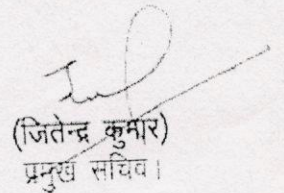 (जितेन्द्र कुमार)
प्रमुख सचिव।